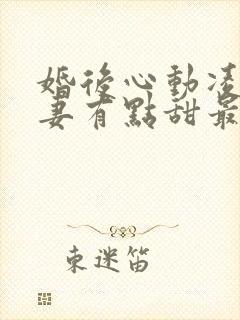 婚後心動凌
妻有點甜最
東迷笛